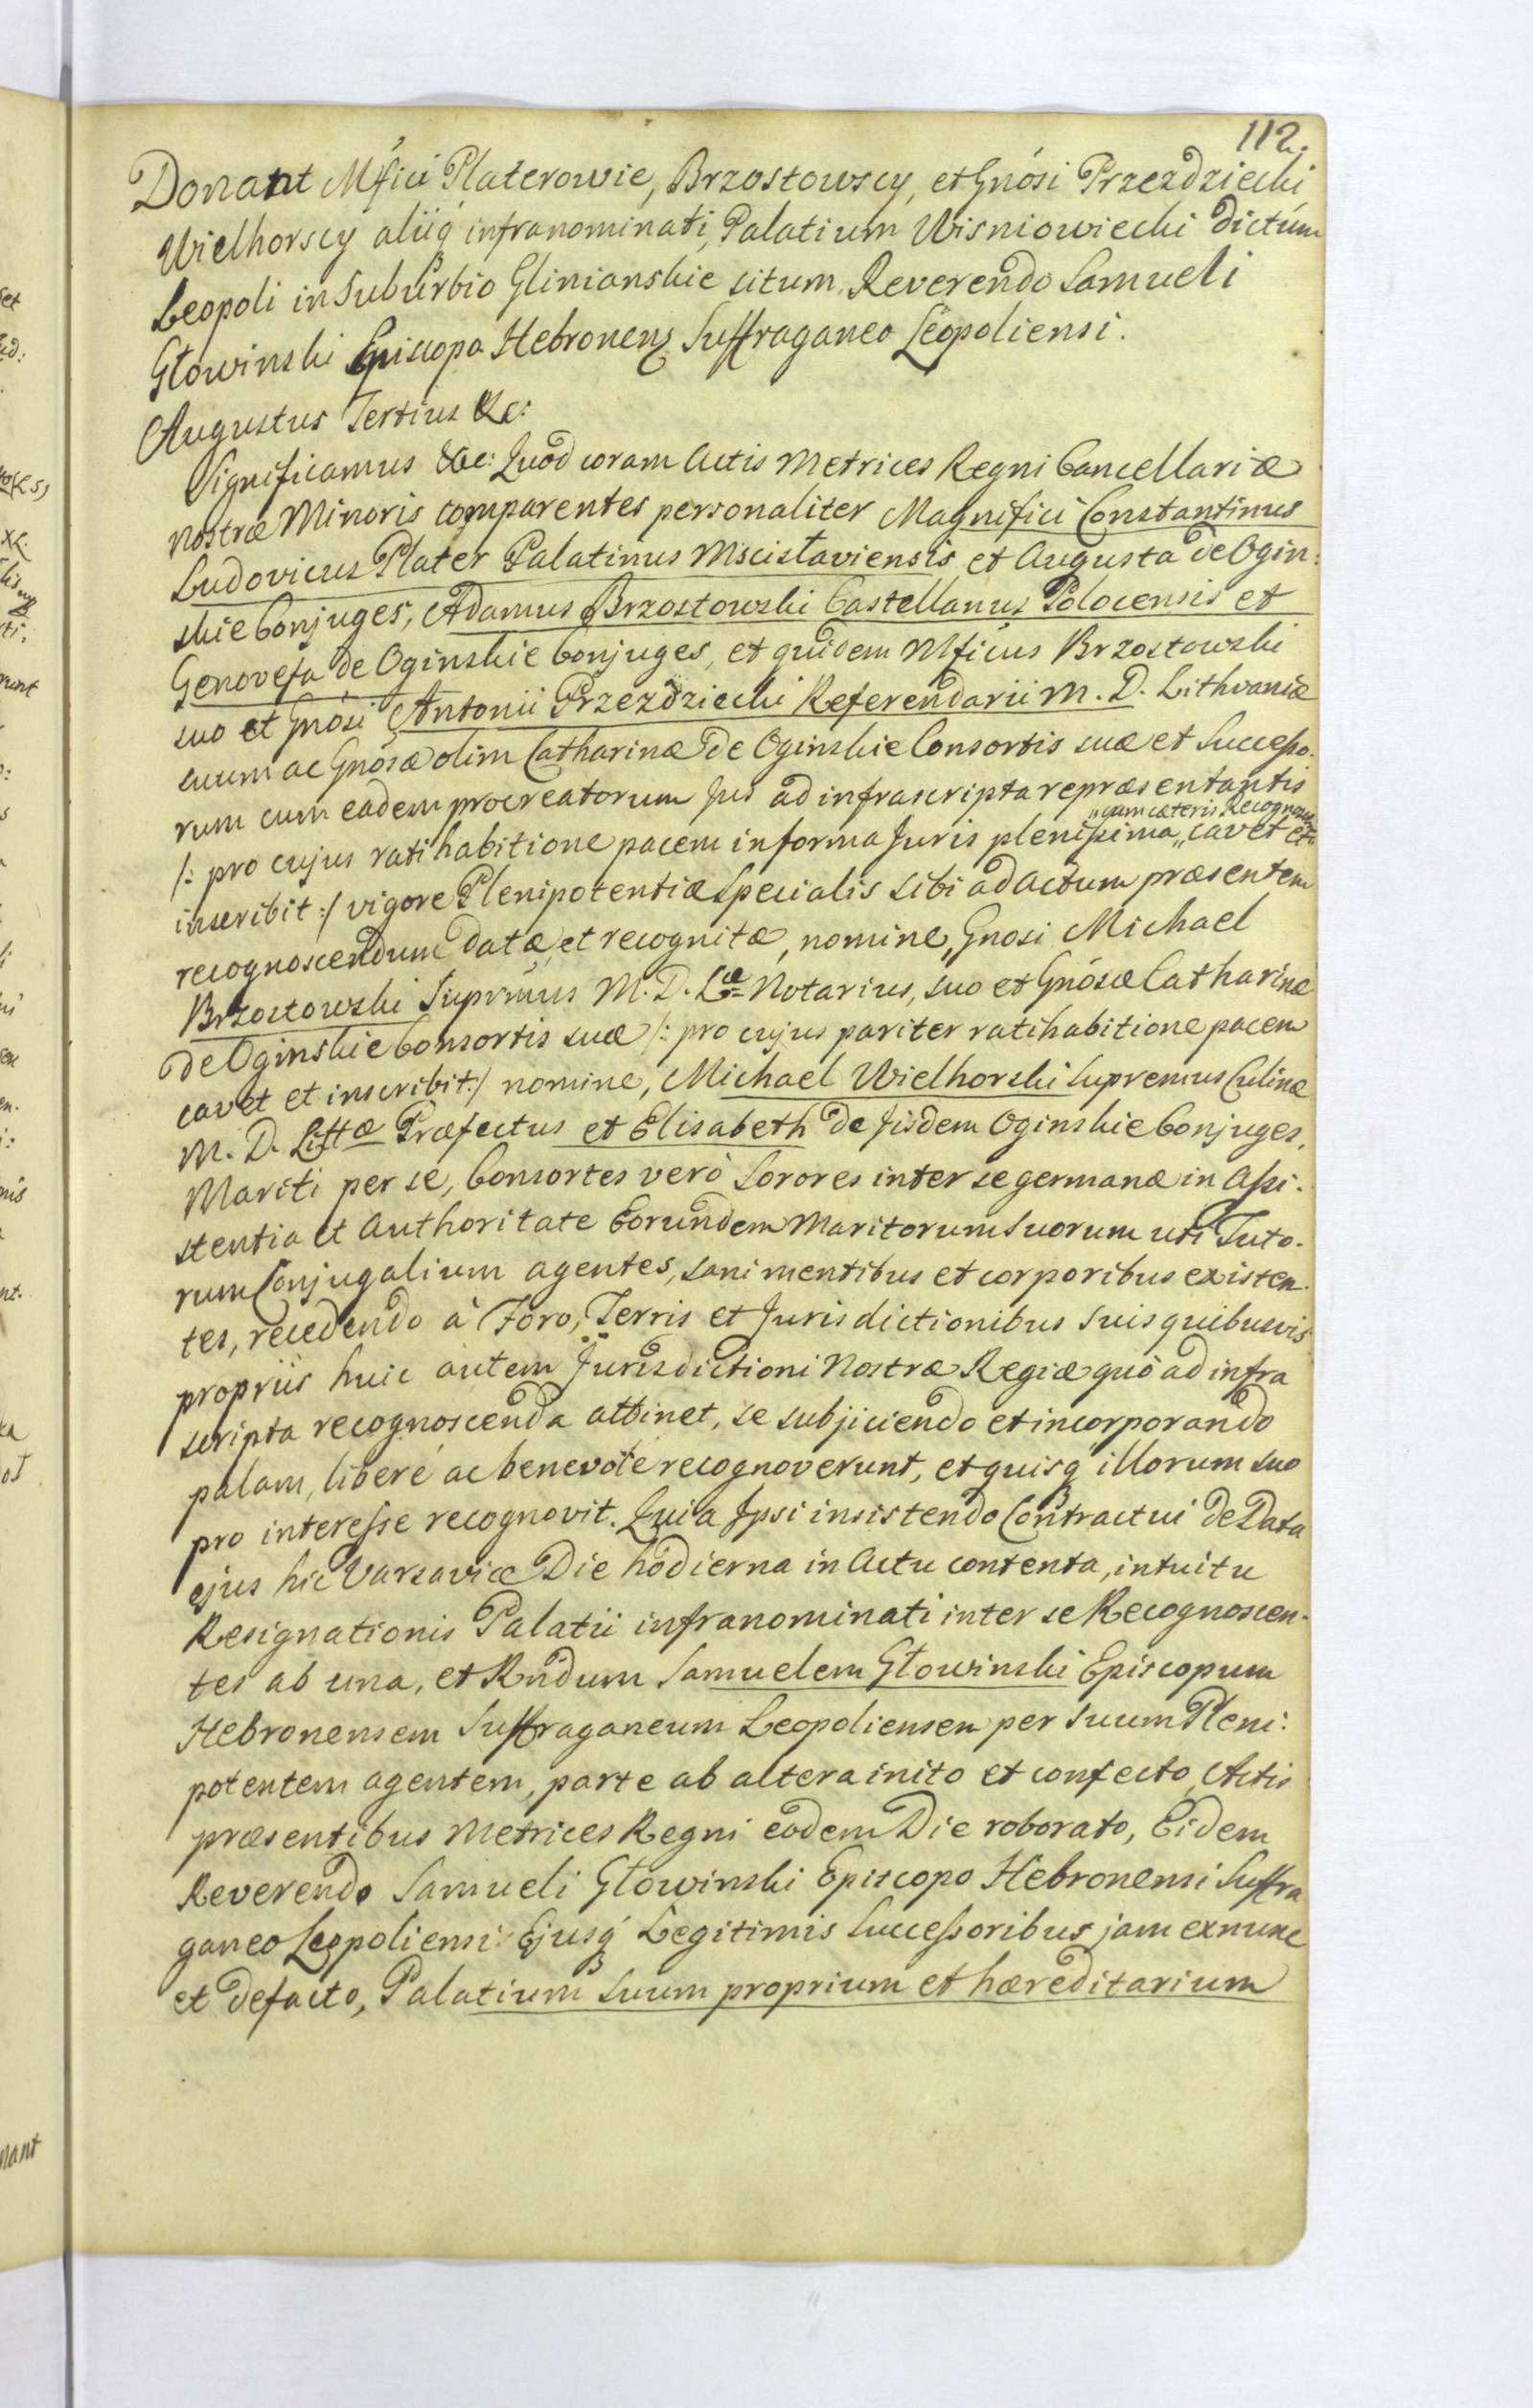 112.
Donant Mfici Platerowie, Brzostowscy, et Gnosi Przezdziecki
Wielhorscy aliiq infranominati, Palatium Wisniowiecki dictum
Leopoli in Suburbio Glinianskie situm, Reverendo Samueli
Głowinski Episcopo Hebronens Suffraganeo Leopoliensi.
Augustus Tertius &c:
Significamus &c: Quod coram Actis Metrices Regni Cancellariæ
nostræ Minoris comparentes personaliter Magnifici Constantinus
Ludovicus Plater Palatinus Mscislaviensis et Augusta de Ogin:
skie Conjuges, Adamus Brzostowski Castellanus Polocensis et
Genovefa de Oginskie Conjuges, et quidem Mficus Brzostowski
suo et Gnosi Antonii Przezdziecki Referendarii M. D. Lithvaniæ
suum ac Gnosæ olim Catharinæ de Oginskie Consortis suæ et Successo.
rum cum eadem procreatorum Jus ad infrascripta repræsentantis
„cum cæteris
/: pro cujus ratihabitione pacem in forma Juris plenissima „ cavet et
inscribit :/ vigore Plenipotentiæ Specialis sibi ad actum præsentem
recognoscendum datæ et recognitæ, nomine, Gnosi Michael
Brzostowski Supremus M. D. Læ Notarius, suo et Gnosæ Catharinæ
de Oginskie Consortis suæ /: pro cujus pariter ratihabitione pacem
cavet et inscribit :/ nomine, Michael Wielhorski Supremus Culinæ
M. D. Littæ Præfectus et Elisabeth de Jisdem Oginskie Conjuges,
Mariti per se, Consortes verò Sorores inter se germanæ in Assi.
stentia et Authoritate Eorundem Maritorum Suorum uti Tuto.
rum Conjugalium agentes, sani mentibus et corporibus existen.
tes, recedendo à Foro, Terris et Jurisdictionibus Suis quibusvis
propriis huic autem Jurisdictioni Nostræ Regiæ quò ad infra
scripta recognoscenda attinet, se subjiciendo et incorporando
palam, liberè ac benevolè recognoverunt, et quisq illorum suo
pro interesse recognovit. Quia Ipsi insistendo Contractui de Data
ejus hic Varsaviæ Die hodierna in Actu contenta, intuitu
Resignationis Palatii infranominati inter se Recognoscen.
tes ab una, et Rndum Samuelem Głowinski Episcopum
Hebronensem Suffraganeum Leopoliensem per suum Pleni:
potentem agentem, parte ab altera inito et confecto, Actis
præsentibus Metrices Regni eodem Die roborato, Eidem
Reverendo Samueli Głowinski Episcopo Hebronensi Suffra
ganeo Leopoliensi Ejusq Legitimis Successoribus jam exnunc
et defacto, Palatium Suum proprium et hæreditarium